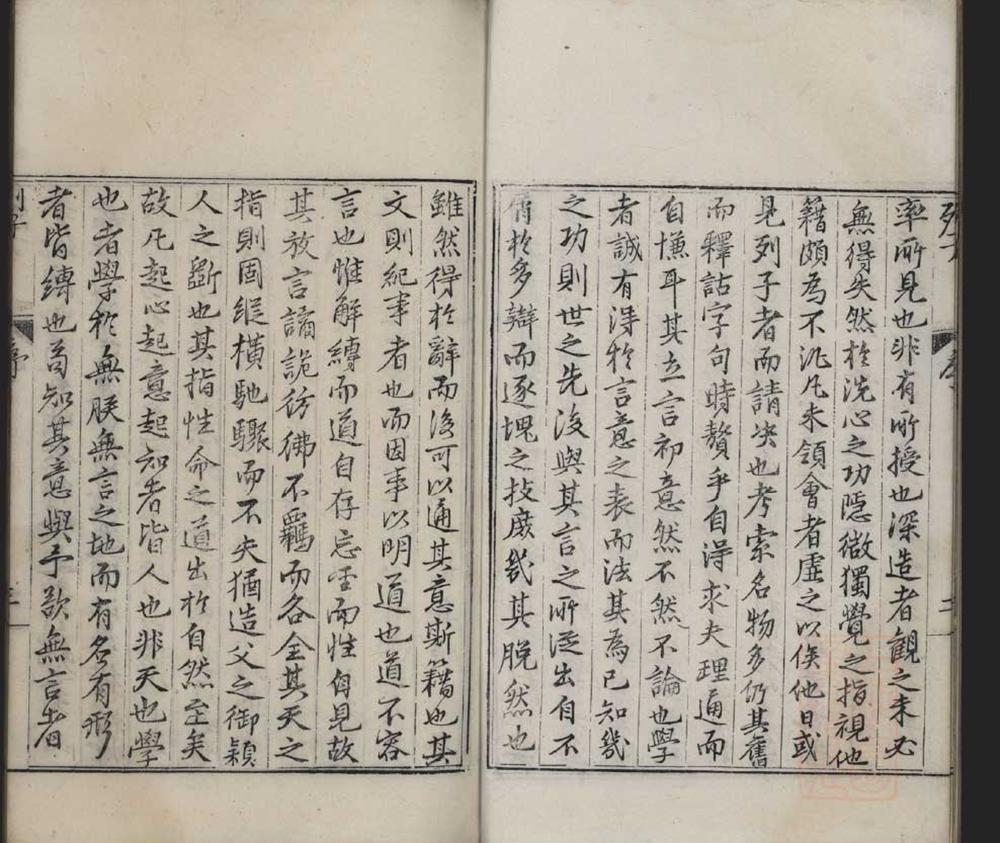 率所見也非有所授也深造者觀之未必
無得失然於洗心之功隱微獨覺之指視他
籍頗為不泛凡未領會者虛之以俟他日或
見列子者而請決也考索名物多仍其舊
而釋詁字句時贅乎自得求夫理通而
自慊耳其立言初意然不然不論也學
者誠有得於言意之表而法其為已知幾
之功則世之先後與其言之所從出自不
屑於多辯而逐塊之技庶幾其脫然也
雖然得於辭而後可以通其意斯籍也其
文則紀事者也而因事以明道也道不容
言也惟解縛而道自存忘而性自見故
其放言譎詭彷彿不羈而各全其天之
指則固縱橫馳驟而不失猶造父之御潁
人之斲也其指性命之道出於自然至矣
故凡起心起意起知者皆人也非天也學
也者學於無朕無言之地而有名有形
者皆縛也苟知其意與予欲無言者
列子
序